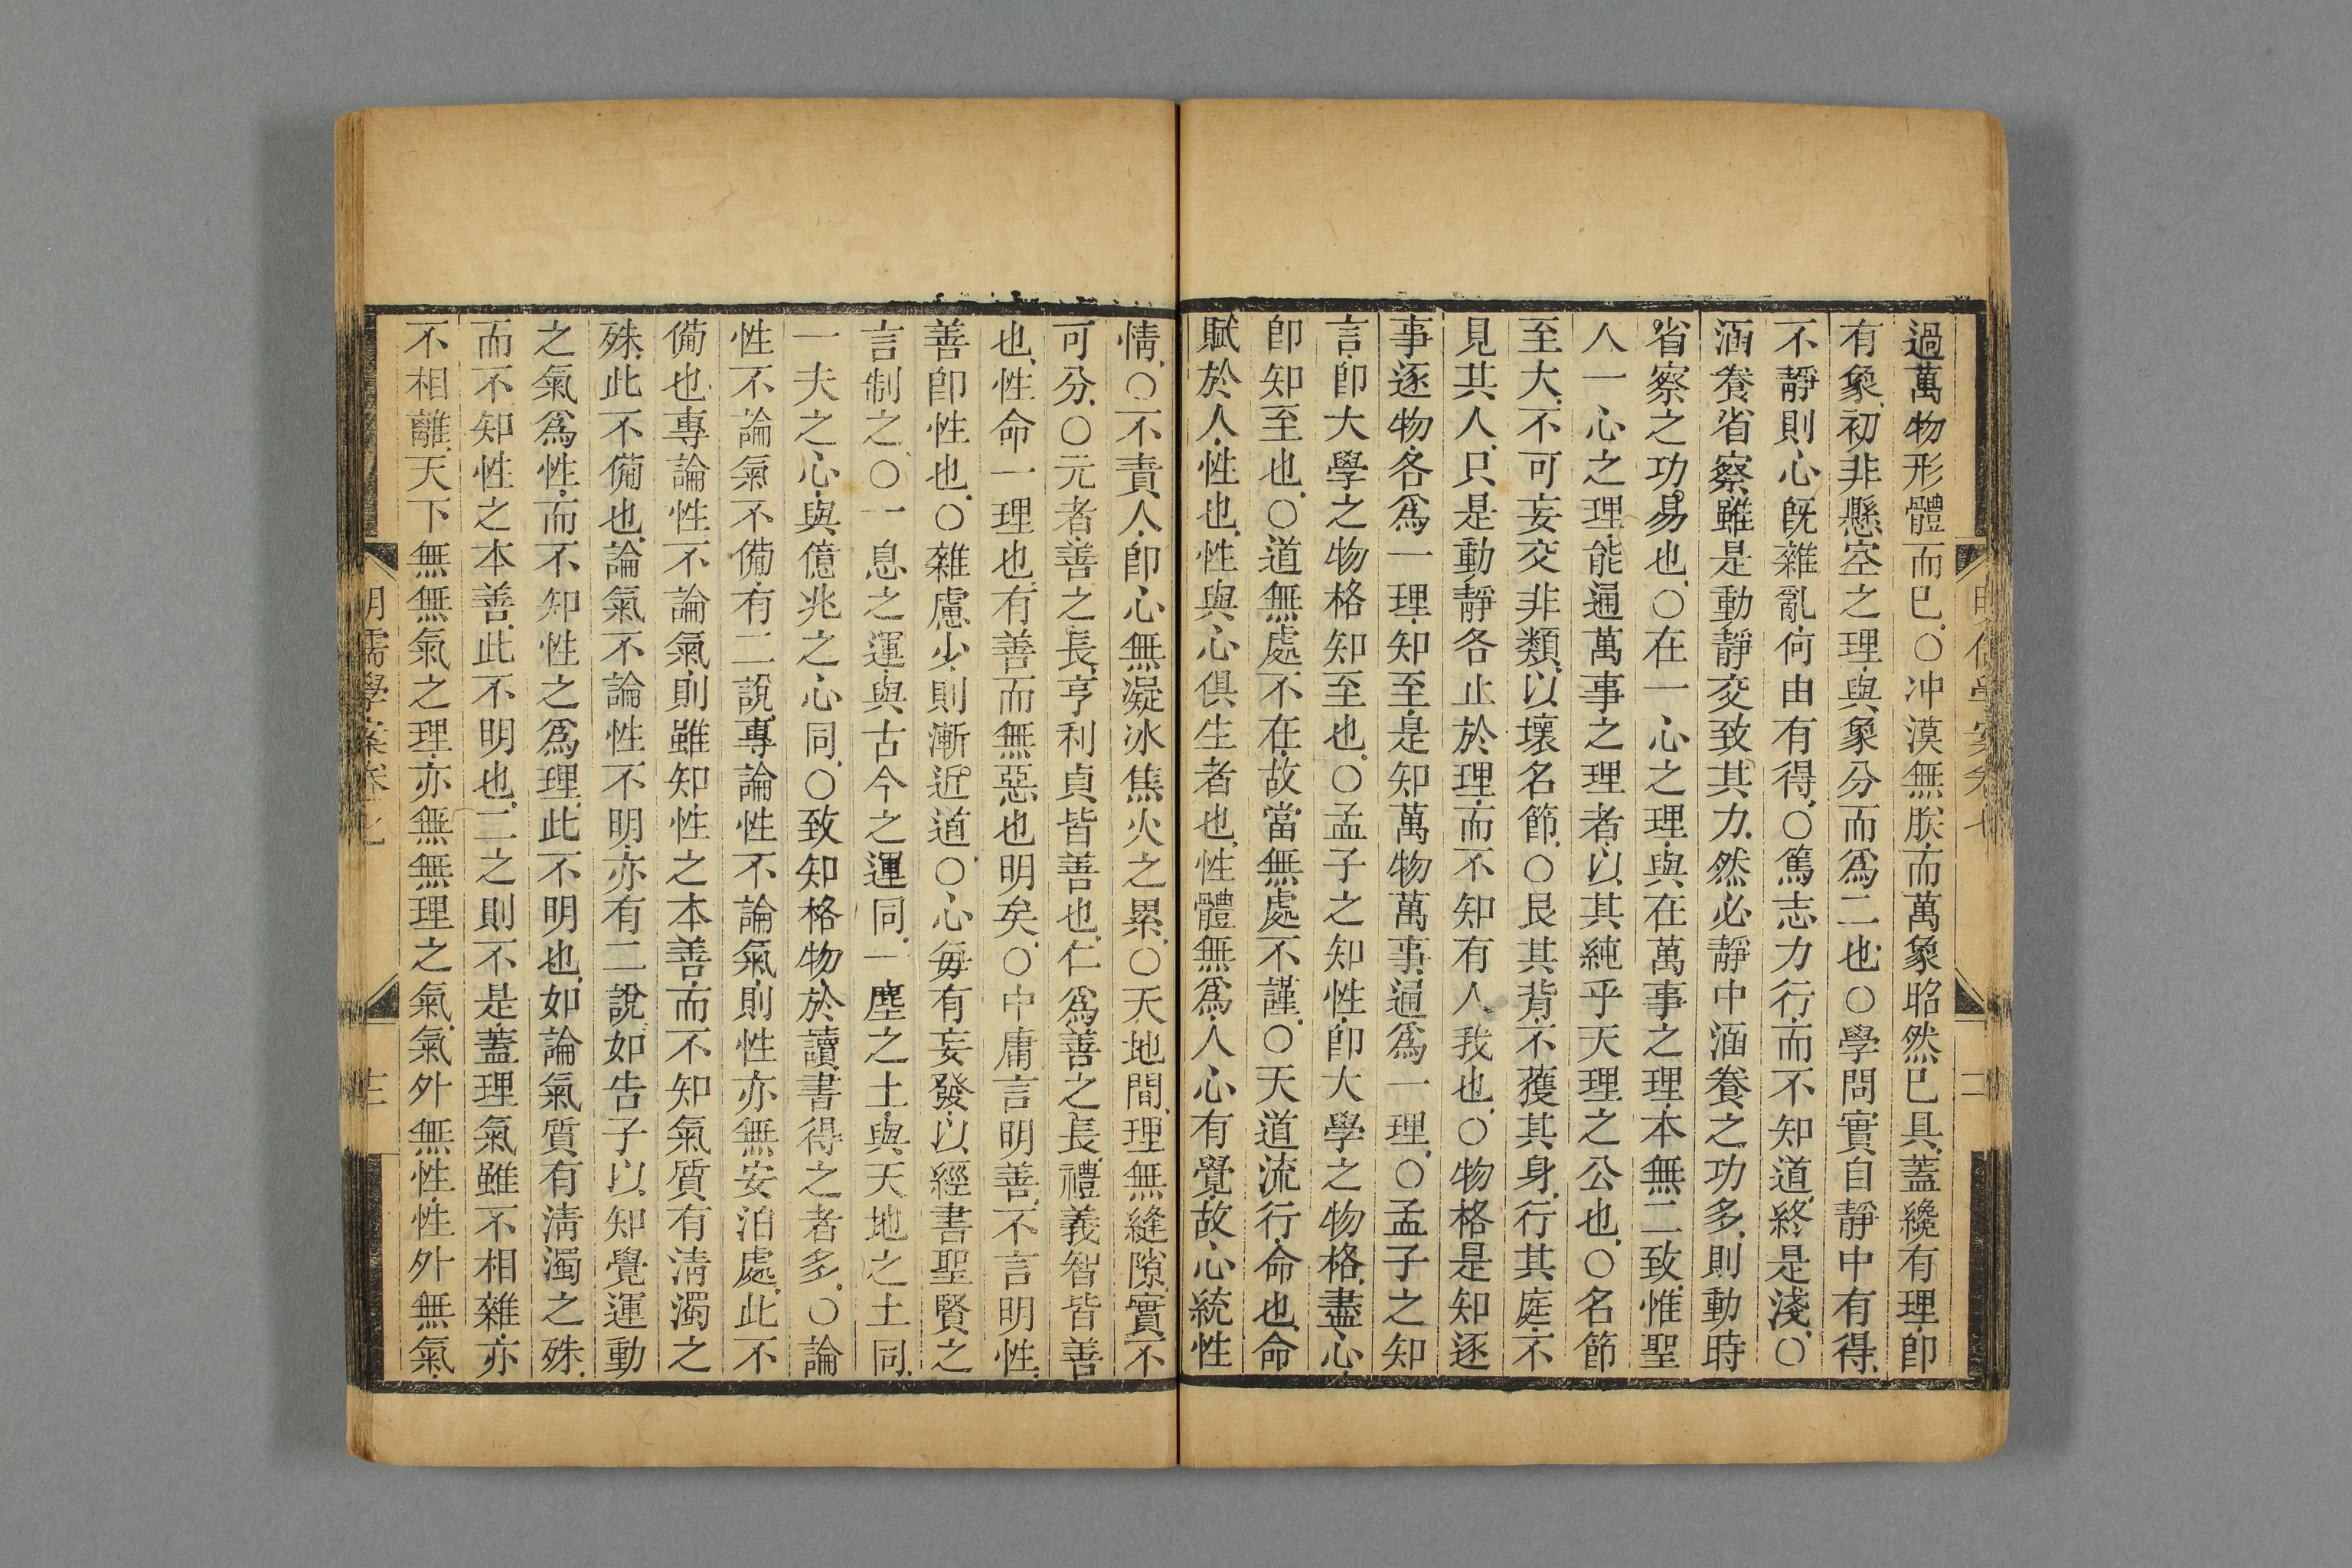 過萬物形體而已○冲漠無朕而萬象昭然已具蓋纔有理卽
有象初非懸空之理與象分而爲二也○學問實自靜中有得
不靜則心旣雜亂何由有得○篤志力行而不知道終是淺○
涵養省察雖是動靜交致其力然必靜中涵養之功多則動時
省察之功易也○在一心之理與在萬事之理本無二致惟聖
人一心之理能通萬事之理者以其純乎天理之公也○名節
至大不可妄交非類以壞名節○艮其背不獲其身行其庭不
見其人只是動靜各止於理而不知有人我也○物格是知逐
事逐物各爲一理知至是知萬物萬事通爲一理○孟子之知
言卽大學之物格知至也○孟子之知性卽大學之物格盡心
卽知至也○道無處不在故當無處不謹○天道流行命也命
賦於人性也性與心俱生者也性體無爲人心有覺故心統性
情○不責人卽心無凝冰焦火之累○天地間理無縫隙實不
可分○元者善之長亨利貞皆善也仁爲善之長禮義智皆善
也性命一理也有善而無惡也明矣○中庸言明善不言明性
善卽性也○雜慮少則漸近道○心每有妄發以經書聖賢之
言制之○一息之運與古今之運同一塵之土與天地之土同
一夫之心與億兆之心同○致知格物於讀書得之者多○論
性不論氣不備有二說專論性不論氣則性亦無安泊處此不
備也專論性不論氣則雖知性之本善而不知氣質有淸濁之
殊此不備也論氣不論性不明亦有二說如告子以知覺運動
之氣爲性而不知性之爲理此不明也如論氣質有淸濁之殊
而不知性之本善此不明也二之則不是蓋理氣雖不相雜亦
不相離天下無無氣之理亦無無理之氣氣外無性性外無氣
明儒學案卷七